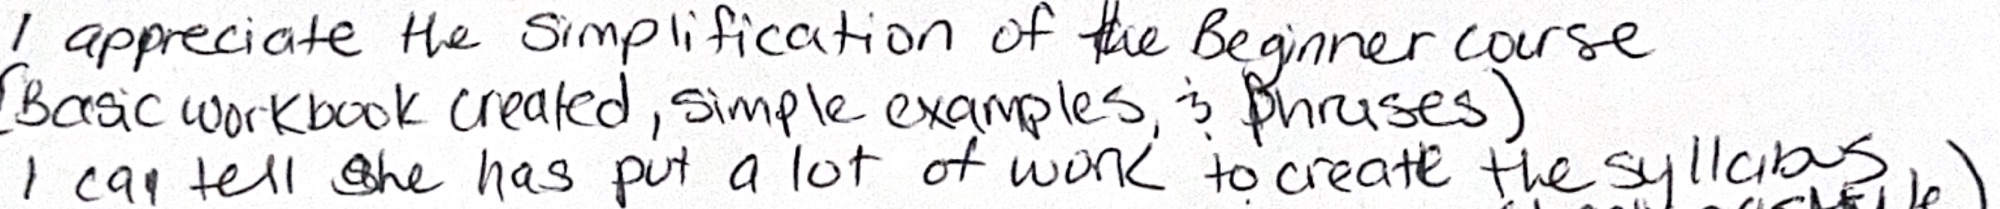 I appreciate the simplification of the Beginner course
(Basic workbook created, simple examples, & Phrases)
I can tell she has put a lot of work to create the syllabus